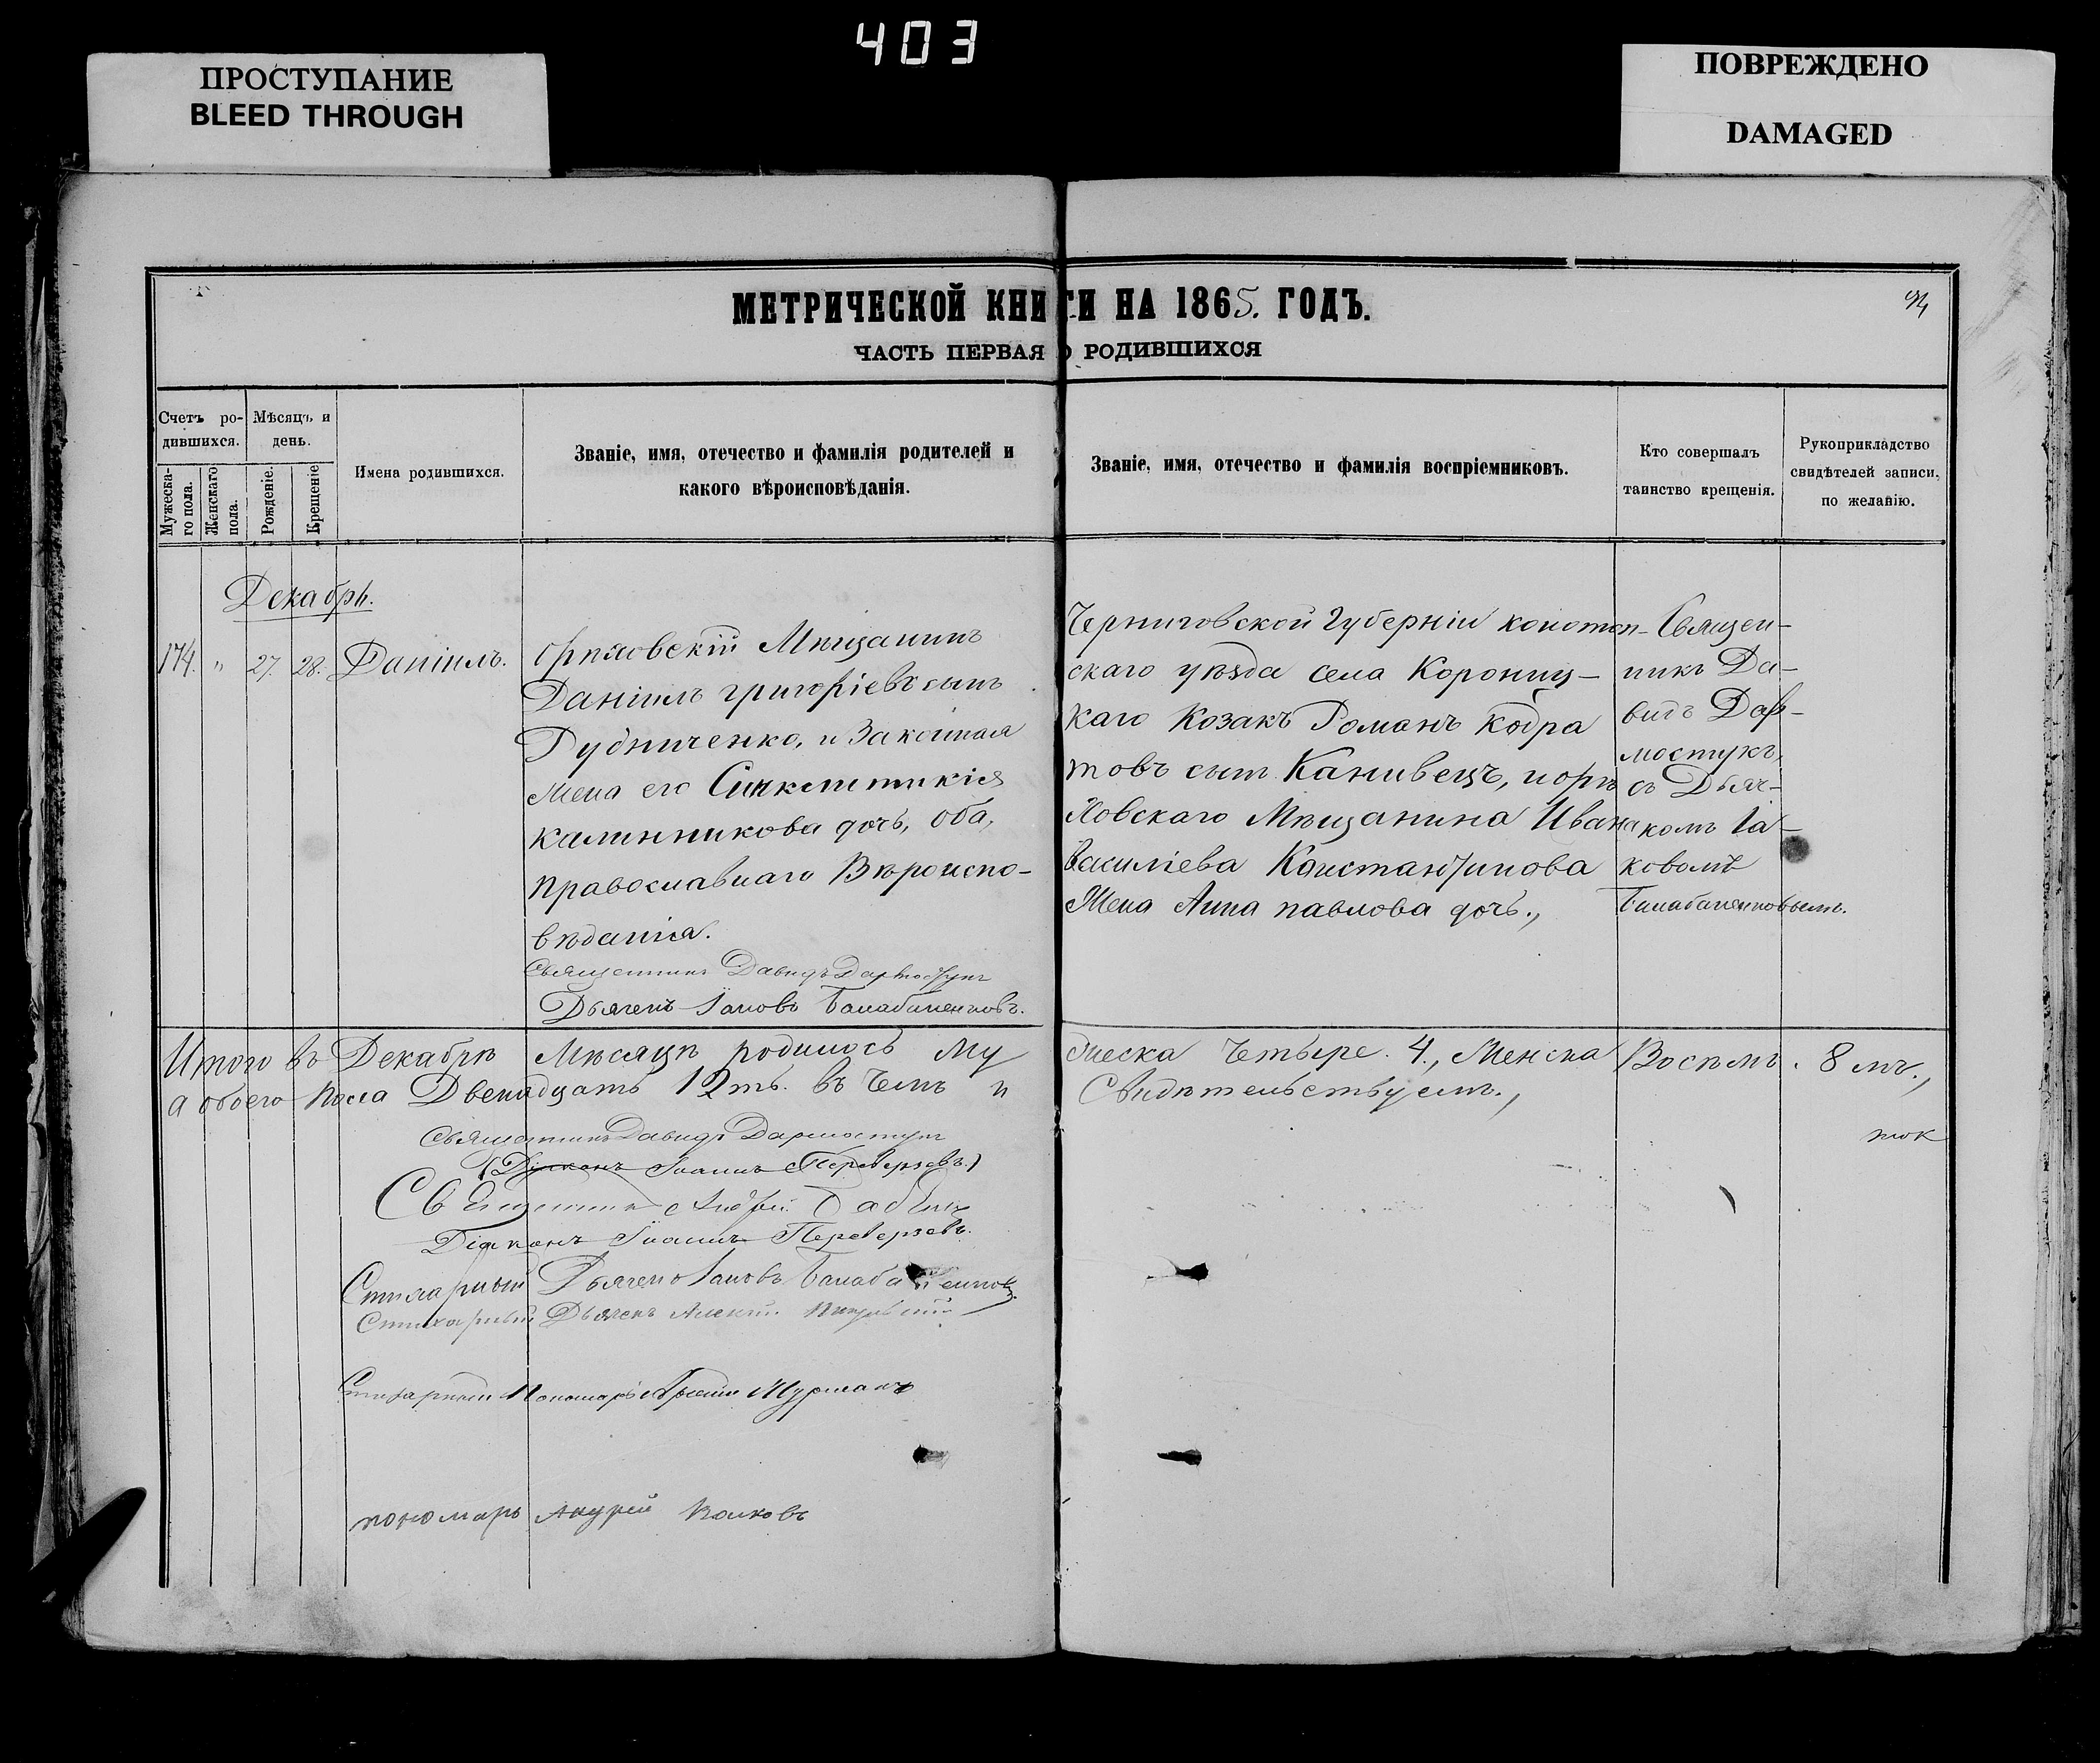 403
ПРОСТУПАНИЕ
BLEED THROUGH
ПОВРЕЖДЕНО
DAMAGED
МЕТРИЧЕСКОЙ КНИГИ НА 1865. ГОДЪ.
ЧАСТЬ ПЕРВАЯ О РОДИВШИХСЯ
Счетъ ро-
дившихся.
Мужеска-
го пола.
Женскаго
пола.
Мѣсяцъ и
день.
Рожденіе.
Крещеніе
Имена родившихся.
Званіе, имя, отечество и фамилія родителей и
какого вѣроисповѣданія.
Званіе, имя, отечество и фамилія воспріемниковъ.
Кто совершалъ
таинство крещенія.
Рукоприкладство
свидѣтелей записи,
по желанію.
Декабрь.
174. " 27. 28. Даніилъ.
Орѣховскій Мѣщанинъ
Даніилъ григоріевъ сынъ
Рудниченко, и Законная
Жена его Синклитикія
Калинникова дочь, оба,
Православнаго Вѣроиспо-
вѣданія.
Священникъ Давидъ Дармостукъ
Дьячекъ Іаковъ Балабаненковъ.
Черниговской Губерніи конотоп-
скаго уѣзда села Корониц-
каго Козакъ Романъ Кодра
товъ сынъ Канивецъ, и орѣ
ховскаго Мѣщанина Ивана
Василіева Константинова
Жена Анна павлова дочь.,
Священ-
никъ Да-
видъ Дар-
мостукъ,
съ Дьяч-
комъ Іа-
ковомъ
Балабаненковымъ.
Итого въ Декабрѣ Мѣсяцѣ родилось Му жеска Четыре. 4., Женска Восѣмъ. 8 мъ.,
а обоего пола Двенадцать 12ть. въ чемъ и Свидѣтельствуемъ.,
Священникъ Давидъ Дармостукъ
(Діаконъ Іоаннъ Переверзевъ.)
Священникъ Андрей
Діаконъ Іоаннъ Переверзевъ.
Стихарный Дьячекъ Іаковъ Балабаненковъ.
Стихарный Дьячекъ Алексій
Стихарный Пономарь
пономарь Андрей Волковъ